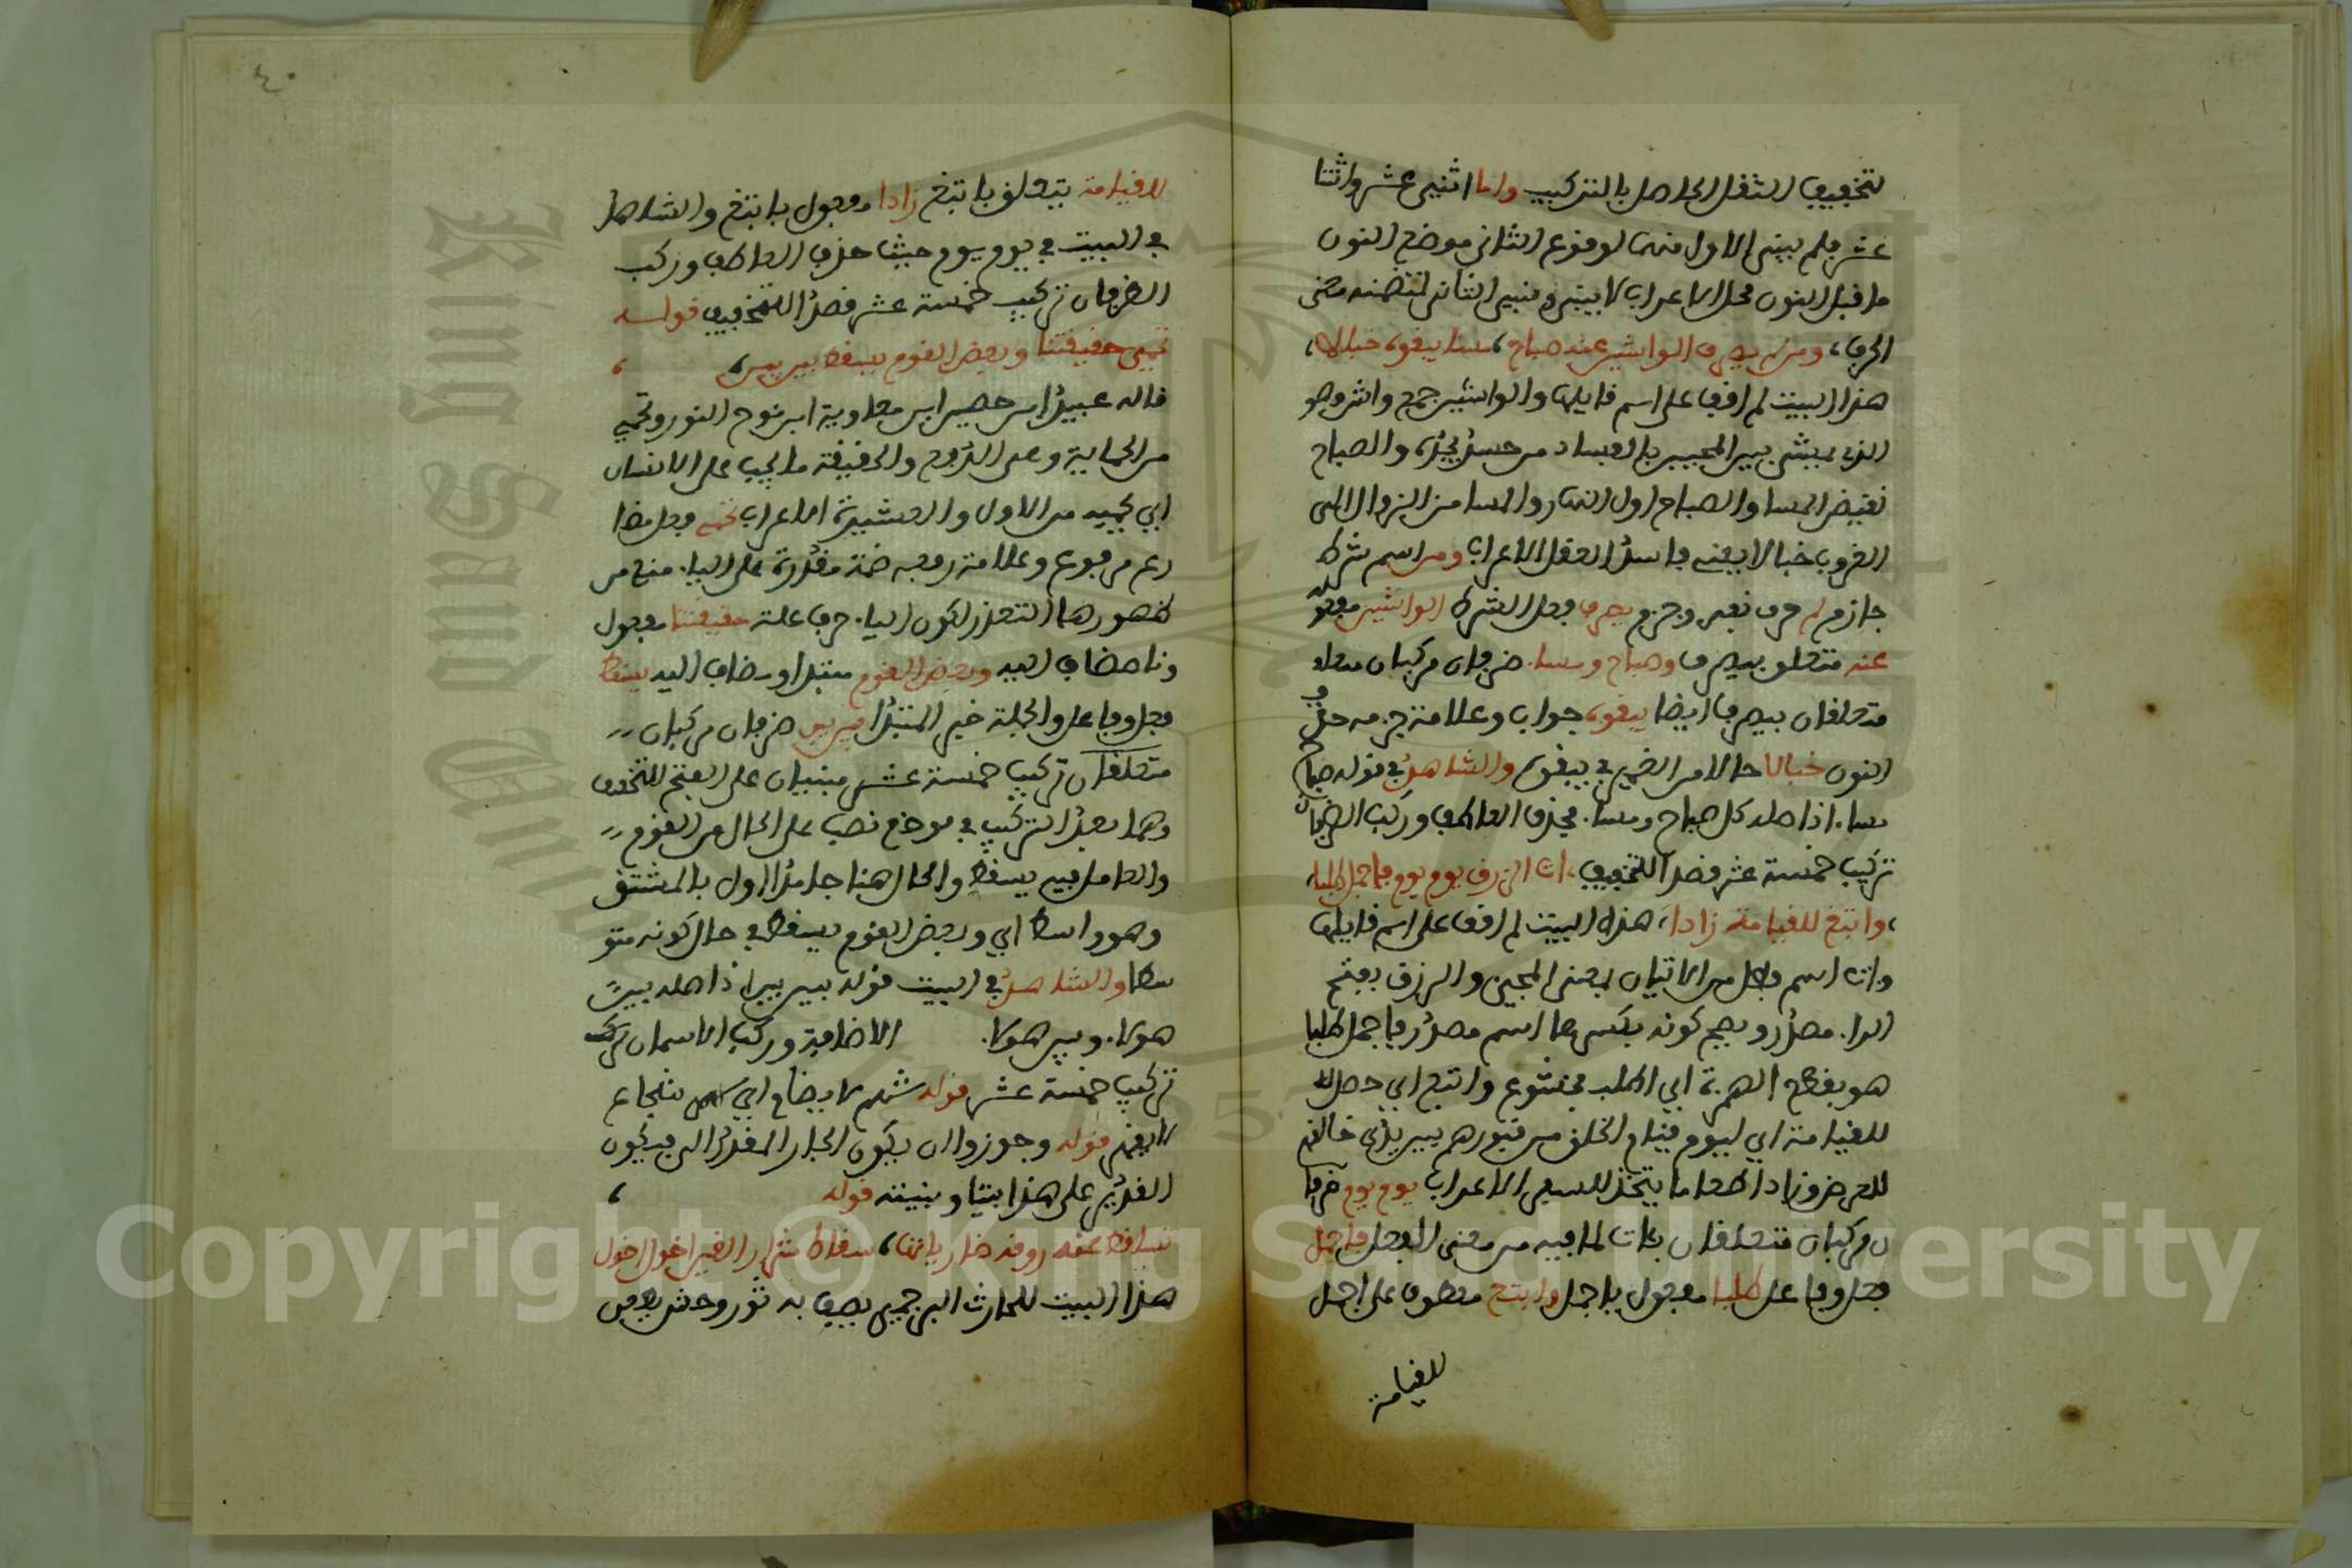 لتخفيف الثقل الحاصل بالتركيب واما اثني عشر واثنتا
عشر فلم يبنى الاول منهما لوقوع الثاني موضع النون
ما قبل النون محل الاعراب لا يبنى وبني الثاني لتضمنه معنى
الحرف، ومن لم يصرف الواشين عنه صباح، مسا يبغوه خبالا،
هذا البيت لم اقف على اسم قايلها والواشين جمع واش وهو
الذي يمشي بين المحبين بالفساد من حسد يجده، والصباح
نقيض المسا والصباح اول النهار والمسا من الزوال الى
الغروب خبالا يعني فاسد العقل الاعراب ومن اسم شرط
جازم لم حرف نفي وجزم يصرف فعل الشرط الواشين مفعوله
عنه متعلق بيصرف وصباح ومسا. ضرفان مركبان معا
متعلقان بيصرف ايضا يبغوه جواب وعلامة جزمه حذف
النون خبالا حالا من الضمير في يبغوه والشاهد في قوله صباح
مسا. اذا صله كل صباح ومسا. فحذف العاطف وركب الضرفان
تركيب خمسة عشر قصدا للتخفيف، ات الرزق يوم يوم فاجمل طلبا،
،وابتغ للقيامة زادا، هذه البيت لم اقف على اسم قايلها
وات اسم فاعل من الاتيان بمعنى المجيئ والرزق بفتح
الرا. مصدر ويصح كونه بكسرها اسم مصدر فاجمل طلبا
هو بقطع الهمزة اي اطلب بخشوع وابتغ اي حصل
للقيامة اي ليوم قيام الخلق من قبورهم بين يدي خالقهم
للعرض وزادا طعاما يتخذ للسفر الاعراب يوم يوم ضرفا
ن مركبان متعلقان بات لما فيه من معنى الفعل فاجمل
فعل وفاعل طلبا مفعول باجمل وابتغ معطوف على اجمل
للقيامة
٤٠
للقيامة يتعلق بابتغ زادا مفعول بابتغ والشاهد
في البيت في يوم يوم حيث حذف العاطف وركب
الضرفان تركيب خمسة عشر قصدا للتخفيف قوله
نحمي حقيقتنا وبعض القوم يسقط بين بين،
قاله عبيد ابن حصين ابن معاوية ابن نوح النور ونحمي
من الحماية وهى الدفع والحقيقة ما يجب على الانسان
اي يحميه من الاول والعشيرة الاعراب نحمي فعل مضا
رع مرفوع وعلامة رفعه ضمة مقدرة على اليا. منع من
ظهورها التعذر لكون اليا. حرف علة حقيقتنا مفعول
ونا مضاف اليه وبعض القوم مبتدا ومضاف اليه يسقط
فعل وفاعل والجملة خبر المبتدا بين بين ضرفان مركبان
متعلقان تركيب خمسة عشر مبنيان على الفتح للتخفيف
وهما بعد التركيب في موضع نصب على الحال من القوم
والعامل فيه يسقط والحال هنا جامد اول بالمشتق
وهو واسط اي وبعض القوم يسقط في حال كونه متو
سطا والشاهد في البيت قوله بين بين اذ اصله بين
هولا. وبين هولا. الاضافة وركب الاسمان تركيب
تركيب خمسة عشر قوله شهم لا يضاع اي شجاع
لا يقهر قوله وجوزوا ان يكون الجار المقدر الى فيكون
التقدير على هذا بيتا وبيته قوله
تساقط عنه روقه ضارياتها، سقاط شرار القين اخول اخول
هذا البيت للحارث البرجمي يصف به ثور وحش يدفع